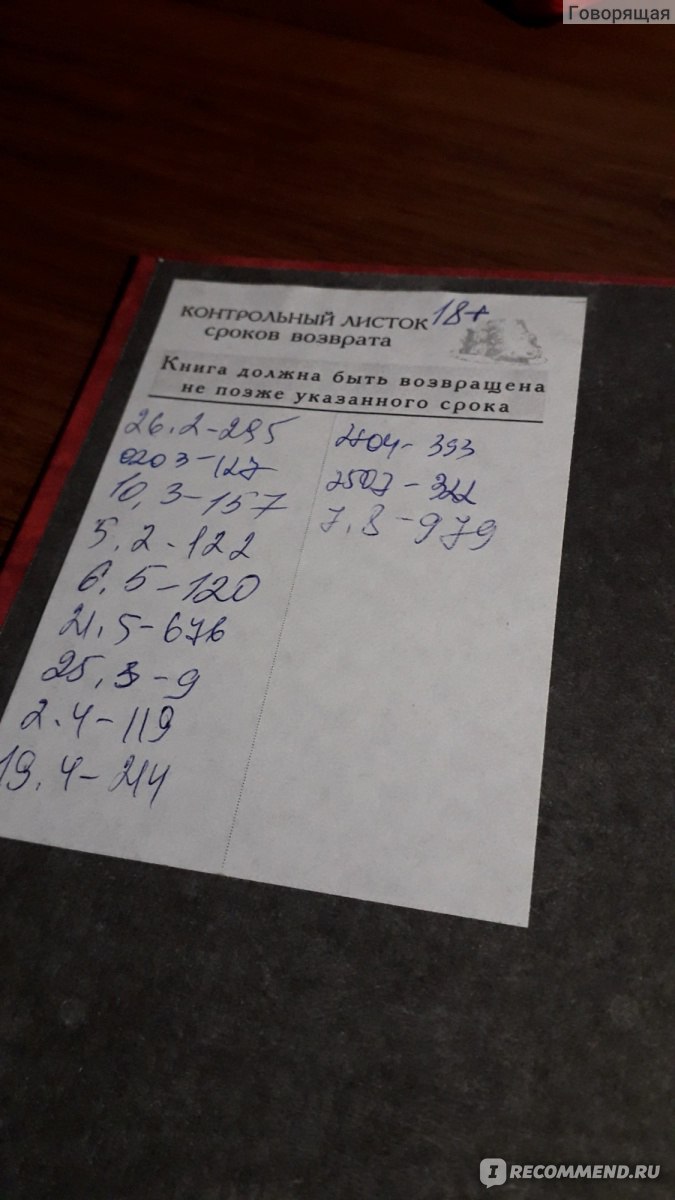 Говорящая
КОНТРОЛЬНЫЙ ЛИСТОК 18+
СРОКОВ ВОЗВРАТА
Книга должна быть возвращена
не позже указанного срока
26.2-295
0203-127
10,3-157
5.2-122
6,5-120
21,5-676
25,3-9
2.4-119
19.4-214
2804-393
2507-322
7,8-979
IRECOMMEND.RU